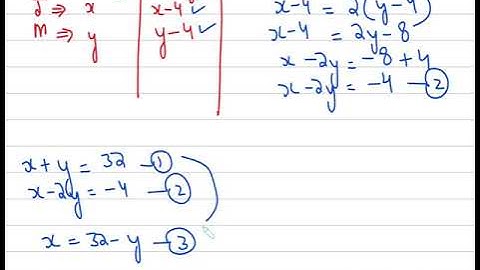 J ⇒ x | x-4 ✓
M ⇒ y | y-4 ✓
x-4 = 2(y-4)
x-4 = 2y-8
x-2y = -8+4
x-2y = -4 —②
x+y = 32 —①
x-2y = -4 —②
x = 32-y —③